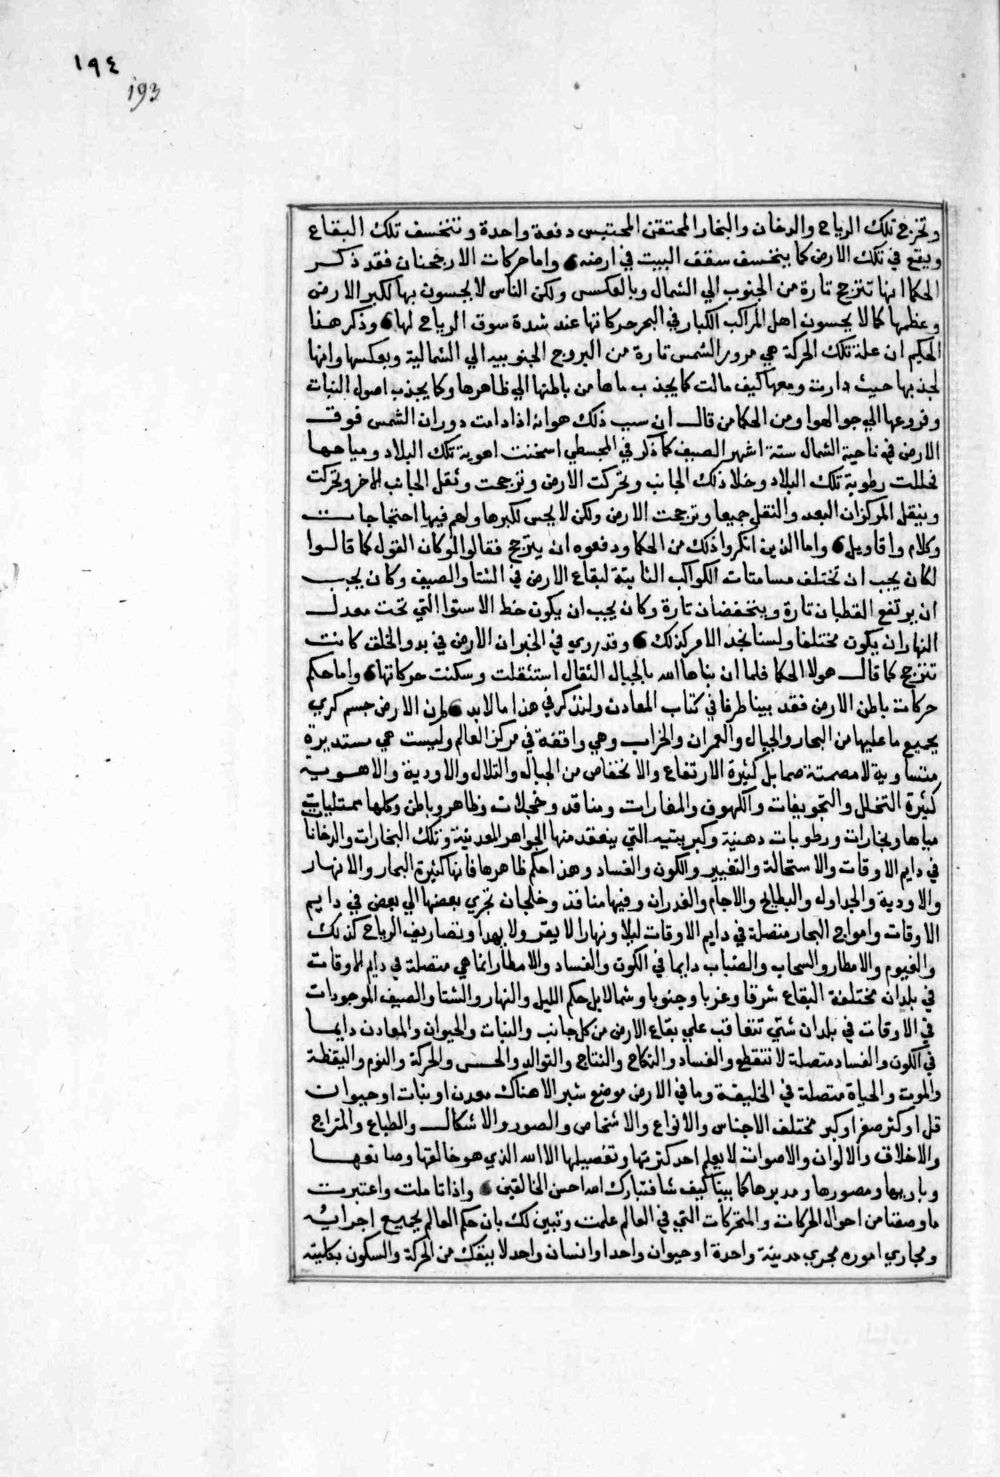 ١٩٤
193
وتخرج تلك الرياح والدخان والبخار المحتقن المحتبس دفعة واحدة وتنخسف تلك البقاع
ويقع في تلك الارض كما ينخسف سقف البيت في ارضه واما حركات الارجحنان فقد ذكر
الحكما انها تترجح تارة من الجنوب الي الشمال وبالعكس ولكن الناس لا يحسون بها لكبر الارض
وعظمها كما لا يحسون اهل المراكب الكبار في البحر حركاتها عند شدة سوق الرياح لها وذكر هذا
الحكيم ان علة تلك الحركة هي مرور الشمس تارة من البروج الجنوبيه الي الشمالية وبعكسها وانها
تجذبها حيث دارت ومعها كيف مالت كما يجذب ماها من باطنها الي ظاهرها وكما يجذب اصول النبات
وفروعها الي جو الهوا ومن الحكما من قال ان سبب ذلك هو انه اذا دامت دوران الشمس فوق
الارض في ناحية الشمال ستة اشهر الصيف كما ذكر في المجسطي اسخنت اهوية تلك البلاد ومياهها
فحللت رطوبة تلك البلاد وخلا ذلك الجانب وتحركت الارض وترجحت وثقل الجانب الاخر وتحركت
وينقل المركزان البعد والثقل جميعا وترجحت الارض ولكن لا يحس لكبرها ولهم فيها احتجاجات
وكلام واقاويل واما الذين انكروا ذلك من الحكما ودفعوه ان يترجح فقالوا لو كان القول كما قالوا
لكان يجب ان تختلف مسامتات الكواكب الثابتة لبقاع الارض في الشتا والصيف وكان يجب
ان يرتفع القطبان تارة وينخفضان تارة وكان يجب ان يكون خط الاستوا التي تحت معدل
النهار ان يكون مختلفا ولسنا نجد الامر كذلك وقد روي في الخبر ان الارض في بدو الخلق كانت
تترجح كما قال هولا الحكما فلما ان بناها الله بالجبال الثقال استثقلت وسكنت حركاتها واما حكم
حركات باطن الارض فقد بينا طرفا في كتاب المعادن ولنذكر في هذا ما لابد ان الارض جسم كري
بجميع ما عليها من البحار والجبال والعمران والخراب وهي واقفة في مركز العالم وليست هي مستديرة
متساوية لا مصمتة صما بل كثيرة الارتفاع والانخفاض من الجبال والتلال والاودية والاهوية
كثيرة التخلل والتجويفات والكهوف والمغارات ومنافذ وخجلات وظاهر وباطن وكلها ممتليات
مياها وبخارات ورطوبات دهنية وكبريتيه التي ينعقد منها الجواهر المعدنية وتلك البخارات والدخانات
في دايم الاوقات والاستحالة والتغيير والكون والفساد وهذا حكم ظاهرها فانها كثيرة البحار والانهار
والاودية والجداول والبطايح والاجام والغدران وفيها منافذ وخلجان تجري بعضها الي بعض في دايم
الاوقات وامواج البحار متصلة في دايم الاوقات ليلا ونهارا لا يفتر ولا يهدا وتصاريف الرياح كذلك
والغيوم والامطار والسحاب والضباب دايما في الكون والفساد والامطار انما هي متصلة في دايم الاوقات
في بلدان مختلفة البقاع شرقا وغربا وجنوبا وشمالا بل حكم الليل والنهار والشتا والصيف الموجودات
في الاوقات في بلدان شتي تتعاقب علي بقاع الارض من كل جانب والنبات والحيوان والمعادن دايما
في الكون والفساد متصلة لا تنقطع والفساد والنكاح والنتاج والتوالد والحس والحركة والنوم واليقظة
والموت والحياة متصلة في الخليقة وما في الارض موضع شبر الا هناك معدن او نبات او حيوان
قل او كثر صغر او كبر مختلف الاجناس والانواع والاشخاص والصور والاشكال والطباع والمزاج
والاخلاق والالوان والاصوات لا يعلم احد كثرتها وتفصيلها الا الله الذي هو خالقها وصانعها
وباريها ومصورها ومدبرها كما بينا كيف شا فتبارك الله احسن الخالقين واذا تاملت واعتبرت
ما وصفنا من احوال الحركات والمتحركات التي في العالم علمت وتبين لك بان حكم العالم بجميع اجرائه
ومجاري اموره مجري مدينة واحدة او حيوان واحد او انسان واحد لا ينفك من الحركة والسكون بكليته